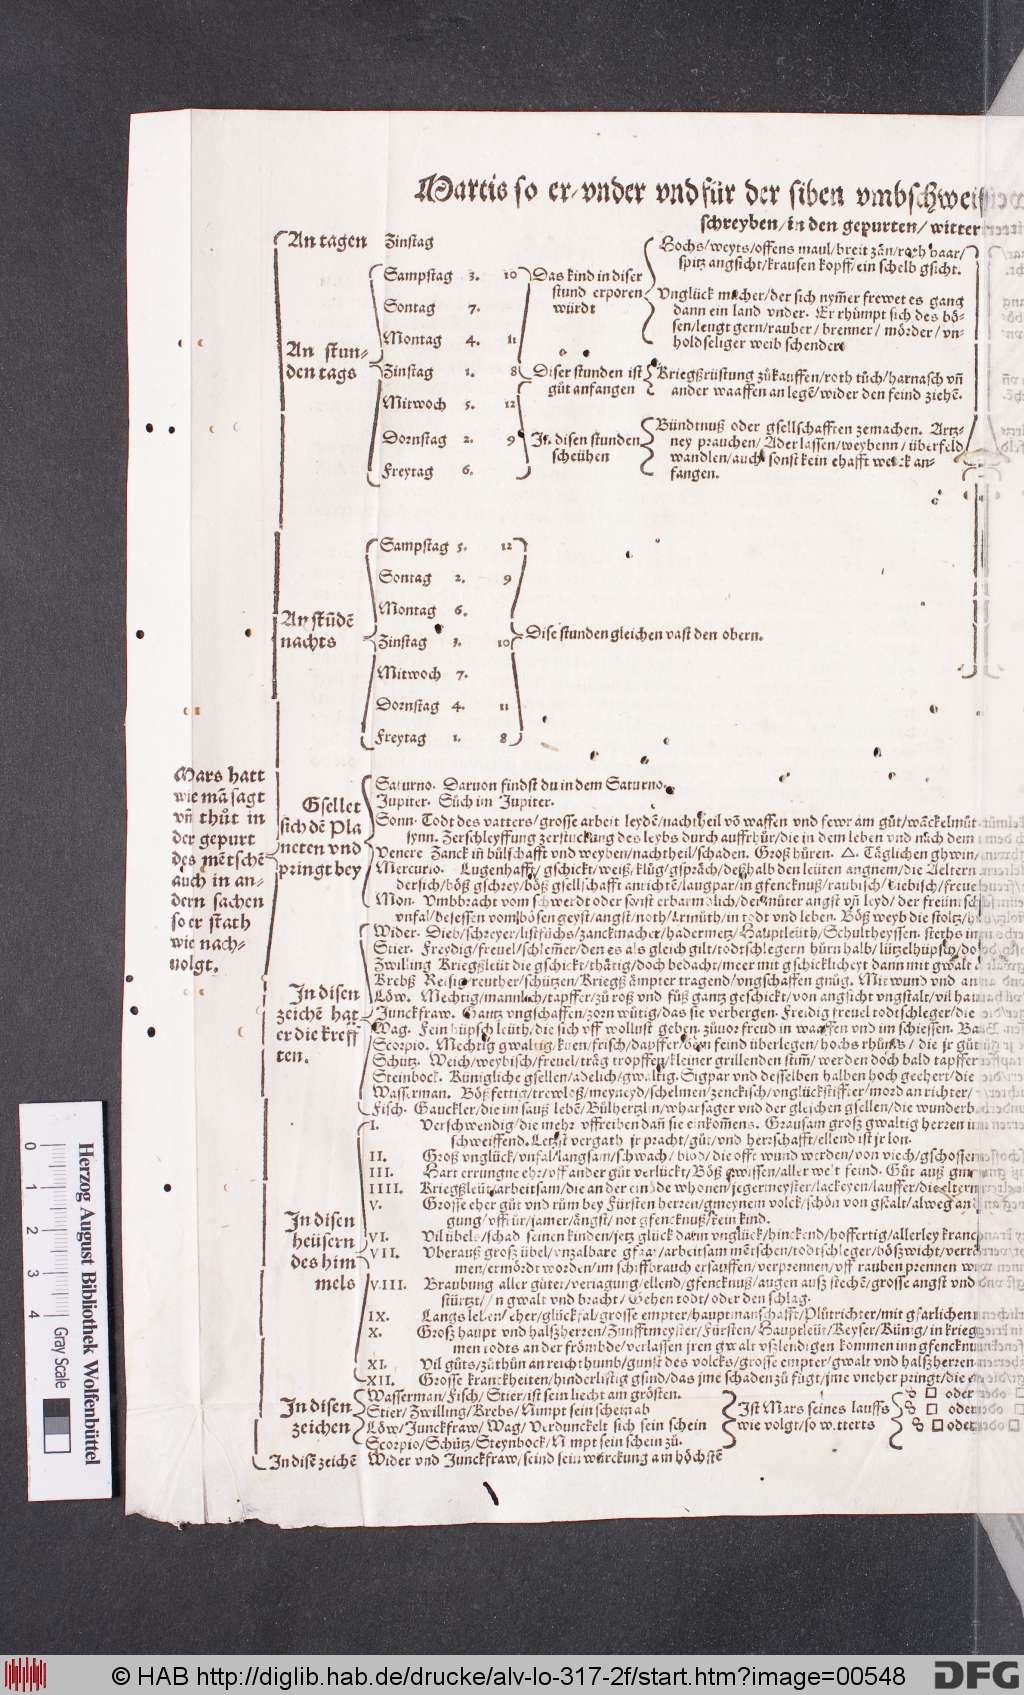 Martis so er/vnder vnd für der siben vmbschwei
schreyben/in den gepurten/witter
An tagen Zinstag
An stun-
den tags
Sampstag 3. 10
Sontag 7.
Montag 4. 11
Zinstag 1. 8
Mitwoch 5. 12
Dornstag 2. 9
Freytag 6.
Das kind in diser
stund erporen
würdt
Hochs/weyts/offens maul/breit zän/roth haar/
spitz angsicht/krausen kopff/ein schelb gsicht.
Vnglück macher/der sich nym̄er frewet es gang
dann ein land vnder. Er rhümpt sich des bö-
sen/leugt gern/rauber/brenner/mörder/vn-
holdseliger weib schender
Diser stunden ist
güt anfangen
Kriegßrüstung zükauffen/roth tüch/harnasch vn̄
ander waaffen an legē/wider den feind ziehē.
In disen stunden
scheühen
Bündtnuß oder gsellschafften zemachen. Artz-
ney prauchen/Aderlassen/weybenn/überfeld
wandlen/auch sonst kein ehafft werck an-
fangen.
An stūdē
nachts
Sampstag 5. 12
Sontag 2. 9
Montag 6.
Zinstag 3. 10
Mitwoch 7.
Dornstag 4. 11
Freytag 1. 8
Dise stunden gleichen vast den obern.
Mars hatt
wie mā sagt
vn̄ thůt in
der gepurt
des mētschē
auch in an-
dern sachen
so er stath
wie nach-
volgt.
Gsellet
sich dē Pla
neten vnd
pringt bey
Saturno. Daruon findst du in dem Saturno.
Jupiter. Süch im Jupiter.
Sonn. Todt des vatters/grosse arbeit leydē/nachtheil vō waffen vnd fewr am güt/wāckelmüt
synn. Zerschleyffung zerstuckung des leybs durch auffrhür/die in dem leben vnd nach dem
Venere Zanck in̄ bülschafft vnd weyben/nachtheil/schaden. Groß hüren. △. Täglichen ghwin/
Mercurio. Lugenhafft/gschickt/weiß/klüg/gspräch/deßhalb den leüten angnem/die Aeltern
dersich/böß gschrey/böß gsellschafft anrichtē/laugpar/in gfencknuß/raubisch/diebisch/freuel
Mon. Vmbbracht vom schwerdt oder sonst erbarmklich/der müter angst vn̄ leyd/der freünt
vnfal/besessen vom bösen geyst/angst/noth/armüth/in todt vnd leben. Böß weyb die stoltz/
In disen
zeichē hat
er die kreff
ten.
Wider. Dieb/schreyer/listfüchs/zanckmacher/hadermetz/Hauptleüth/Schultheyssen. steths in
Stier. Freydig/freuel/schlem̄er/den es als gleich gilt/todtschlegern hürn halb/lützel hüpsch/
Zwilling Kriegßleüt die gschickt/thätig/doch bedacht/meer mit gschicklicheyt dann mit gwalt
Krebß Reisig reuther/schützen/Kriegß ämpter tragend/vngschaffen gnüg. Mit wund vnd an
Löw. Mechtig/mannlich/tapffer/zü roß vnd füß gantz geschickt/von angsicht vngstalt/vil ha
Junckfraw. Gantz vngschaffen/zorn wütig/das sie verbergen. Freidig freuel todtschleger/die
Wag. Fein hüpsch leüth/die sich vff wollust geben. züuor freud in waaffen vnd im schiessen.
Scorpio. Mechtig gwaltig/küen/frisch/dapffer/den feind überlegen/hochs rhüms/die jr güt
Schütz. Weich/weybisch/freuel/träg tropffen/kleiner grillenden stim̄/werden doch bald tapffer
Steinbock. Künigliche gsellen/adelich/gwaltig. Sigpar vnd desselben halben hoch geehert/die
Wasserman. Böß fettig/trewloß/meyneyd/schelmen/zenckisch/vnglückstiffter/mord anrichter/
Fisch. Gauckler/die im sauß lebē/Bülhertzlin/wharsager vnd der gleichen gsellen/die wunderb
In disen
heüsern
des him
mels
I. Verschwendig/die mehr vffreiben dan̄ sie einkom̄ens. Grausam groß gwaltig herren vn
schweiffend. Letzst vergath jr pracht/güt/vnd herrschafft/ellend ist jr lon.
II. Groß vnglück/vnfal/langsam/schwach/blöd/die offt wund werden/von viech/gschossen
III. Hart errungne ehr/vff ander güt verlückt/Böß gwissen/aller welt feind. Güt auß gm
IIII. Kriegßleüt arbeitsam/die an der einöde whonen/jegermeyster/lackeyen/lauffer/die eltern
V. Grosse eher güt vnd rüm bey Fürsten herren/gmeynem volck/schön von gstalt/alweg an
gung/vffrür/jamer/ängst/not gfencknuß/kein kind.
VI. Vil übels/schad seinen kinden/jetz glück dann vnglück/hinckend/hoffertig/allerley kranc
VII. Überauß groß übel/vnzalbare gfaar/arbeitsam mētschen/todtschleger/bößwicht/verr
men/ermördt worden/im schiffbrauch ersauffen/verprennen/vff rauben prennen
VIII. Beraubung aller güter/veriagung/ellend/gfencknuß/augen außstechē/grosse angst vnd
stürtzt/in gwalt vnd bracht/Gehen todt/oder den schlag.
IX. Langs leben/eher/glückfal/grosse empter/hauptmanschafft/Plütrichter/mit gfarlichen
X. Groß haupt vnd halßherren/Zunfftmeyster/Fürsten/Hauptleüt/Keyser/Künig/in krieg
men todts an der frömbde/verlassen jren gwalt vß/elendigen kommen inn gfencknu
XI. Vil güts/züthün an reichthumb/gunst des volcks/grosse empter/gwalt vnd halßherren
XII. Grosse kranckheiten/hinderlistig gsind/das jme schaden zü fügt/jme vneher pringt/die
In disen
zeichen
Wasserman/Fisch/Stier/ist sein liecht am grösten.
Stier/Zwilling/Krebs/Nimpt sein schein ab
Löw/Junckfraw/Wag/Verdunckelt sich sein schein
Scorpio/Schütz/Steynbock/Nimpt sein schein zü.
Ist Mars seines lauffs
wie volgt/so witterts
☍ □ oder
☍ □ oder
☍ □ oder
In disē zeichē Wider vnd Junckfraw/seind sein würckung am höchstē
Herzog August Bibliothek Wolfenbüttel
0 1 2 3 4
Gray Scale
© HAB http://diglib.hab.de/drucke/alv-lo-317-2f/start.htm?image=00548
DFG